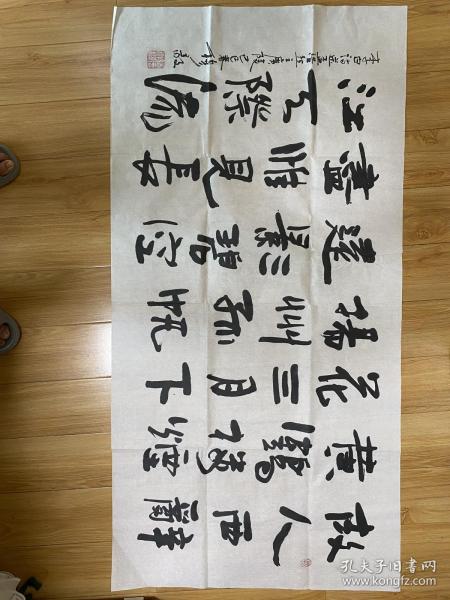 故人西辭
黄鶴樓煙
花三月下
揚州孤帆
遠影碧空
盡惟見長
江天際流
李白詩孟浩然之廣陵
孔夫子旧书网
www.kongfz.com